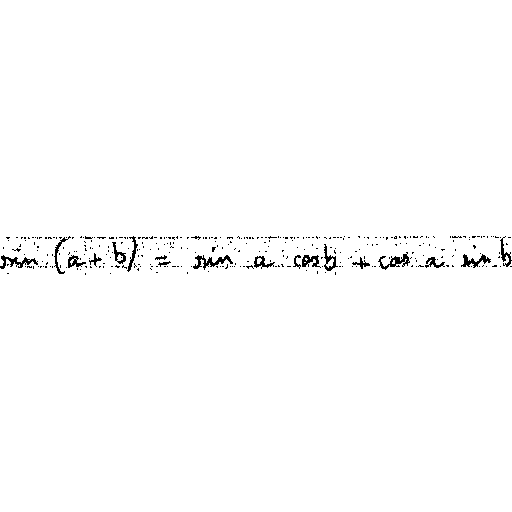 sin (a + b) = sin a cos b + cos a sin b